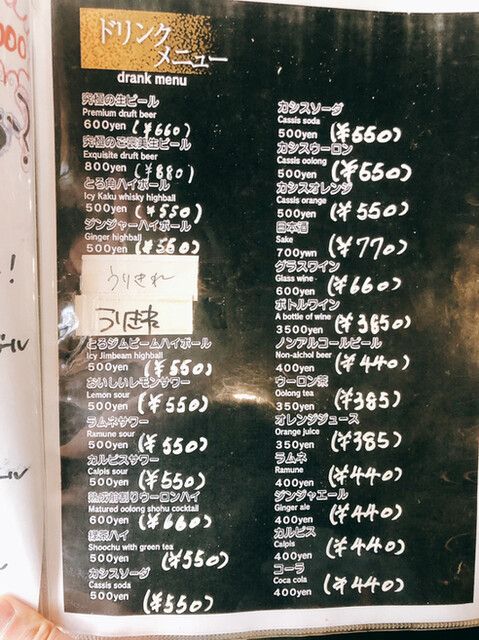 ドリンク
メニュー
drank menu
究極の生ビール
Premium druft beer
600yen (¥660)
究極のご褒美生ビール
Exquisite druft beer
800yen (¥880)
とろ角ハイボール
Icy Kaku whisky highball
500yen (¥550)
ジンジャーハイボール
Ginger highball
500yen (¥550)
うりきれ
うりきれ
とろジムビームハイボール
Icy Jimbeam highball
500yen (¥550)
おいしいレモンサワー
Lemon sour
500yen (¥550)
ラムネサワー
Ramune sour
500yen (¥550)
カルピスサワー
Calpis sour
500yen (¥550)
熟成前割りウーロンハイ
Matured oolong shohu cocktail
600yen (¥660)
緑茶ハイ
Shoochu with green tea
500yen (¥550)
カシスソーダ
Cassis soda
500yen (¥550)
カシスソーダ
Cassis soda
500yen (¥550)
カシスウーロン
Cassis oolong
500yen (¥550)
カシスオレンジ
Cassis orange
500yen (¥550)
日本酒
Sake
700ywn (¥770)
グラスワイン
Glass wine
600yen (¥660)
ボトルワイン
A bottle of wine
3500yen (¥3850)
ノンアルコールビール
Non-alchol beer
400yen (¥440)
ウーロン茶
Oolong tea
350yen (¥385)
オレンジジュース
Orange juice
350yen (¥385)
ラムネ
Ramune
400yen (¥440)
ジンジャエール
Ginger ale
400yen (¥440)
カルピス
Calpis
400yen (¥440)
コーラ
Coca cola
400yen (¥440)